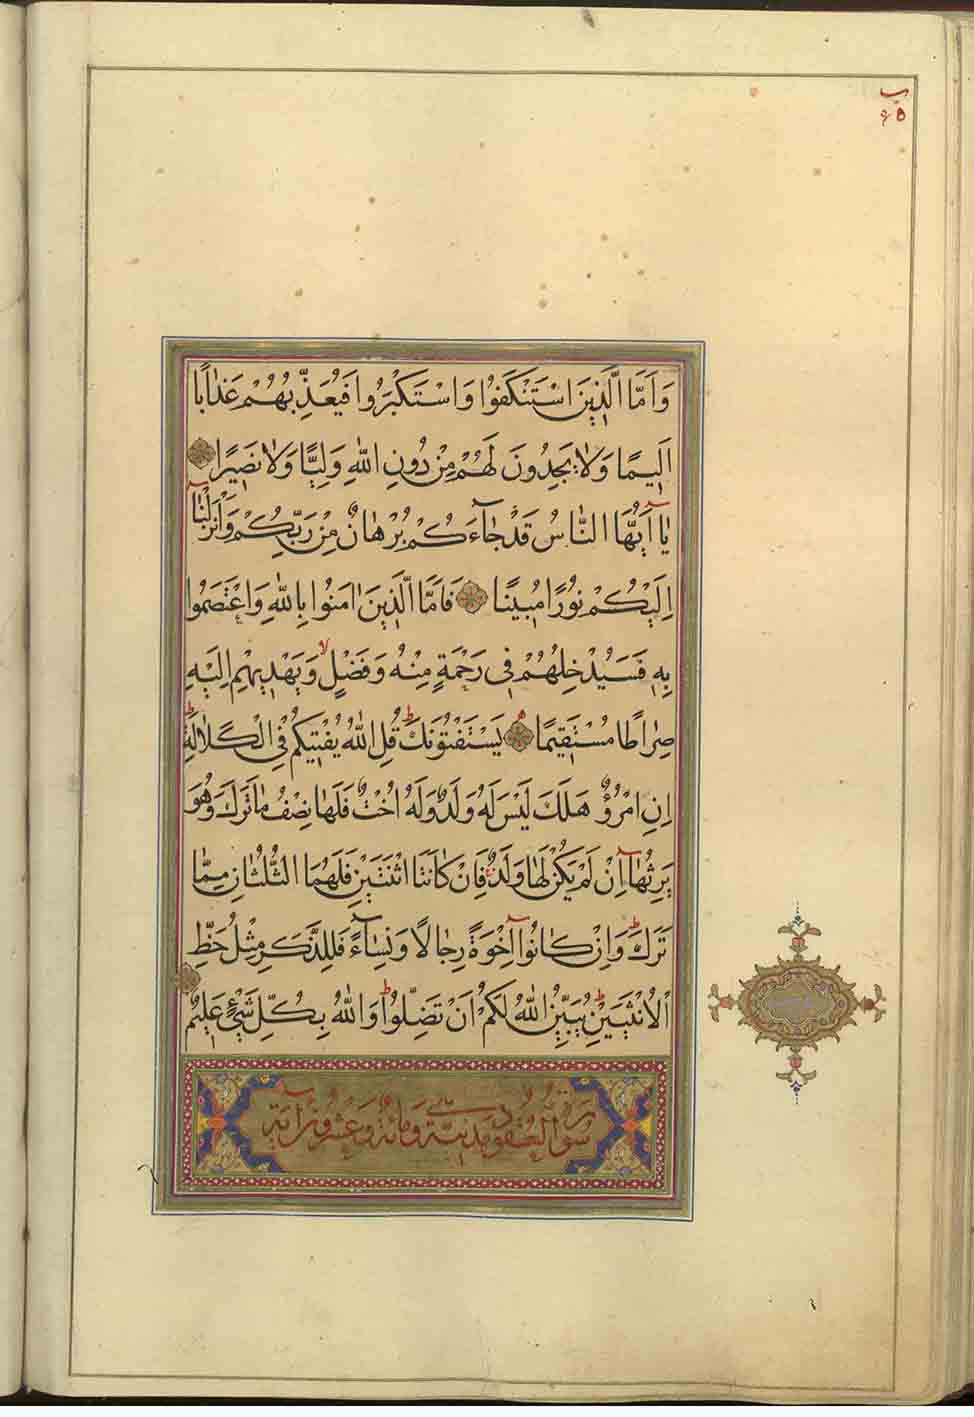 وَاَمَّا الَّذٖينَ اسْتَنْكَفُوا وَاسْتَكْبَرُوا فَيُعَذِّبُهُمْ عَذَابًا
اَلٖيمًا وَلَا يَجِدُونَ لَهُمْ مِنْ دُونِ اللّٰهِ وَلِيًّا وَلَا نَصٖيرًا
يَا اَيُّهَا النَّاسُ قَدْ جَآءَكُمْ بُرْهَانٌ مِنْ رَبِّكُمْ وَاَنْزَلْنَا
اِلَيْكُمْ نُورًا مُبٖينًا فَاَمَّا الَّذٖينَ اٰمَنُوا بِاللّٰهِ وَاعْتَصَمُوا
بِهٖ فَسَيُدْخِلُهُمْ فٖى رَحْمَةٍ مِنْهُ وَفَضْلٍ لا وَيَهْدٖيهِمْ اِلَيْهِ
صِرَاطًا مُسْتَقٖيمًا يَسْتَفْتُونَكَ ط قُلِ اللّٰهُ يُفْتٖيكُمْ فِى الْكَلَالَةِ ط
اِنِ امْرُؤٌ هَلَكَ لَيْسَ لَهُ وَلَدٌ وَلَهُ اُخْتٌ فَلَهَا نِصْفُ مَا تَرَكَ وَهُوَ
يَرِثُهَا اِنْ لَمْ يَكُنْ لَهَا وَلَدٌ فَاِنْ كَانَتَا اثْنَتَيْنِ فَلَهُمَا الثُّلُثَانِ مِمَّا
تَرَكَ ط وَاِنْ كَانُوا اِخْوَةً رِجَالًا وَنِسَآءً فَلِلذَّكَرِ مِثْلُ حَظِّ
الْاُنْثَيَيْنِ ط يُبَيِّنُ اللّٰهُ لَكُمْ اَنْ تَضِلُّوا ط وَاللّٰهُ بِكُلِّ شَىْءٍ عَلٖيمٌ
سورة العقود مدنية وهى مائة وعشرون آية